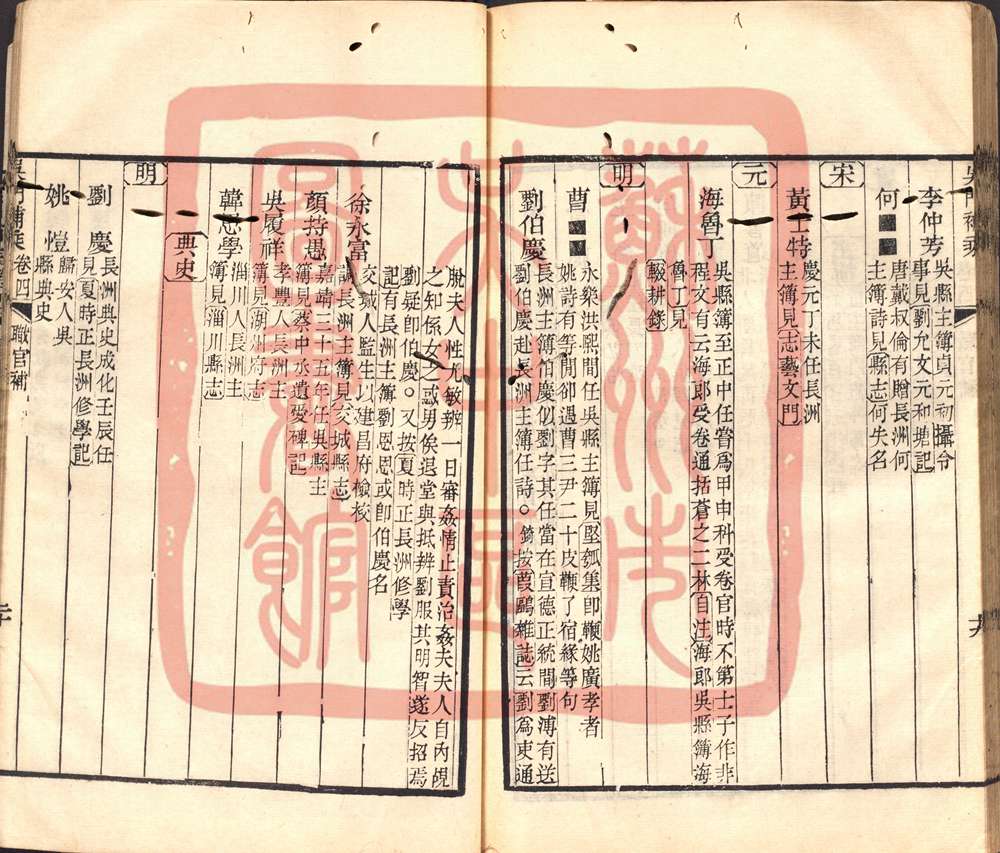 李仲芳
吳縣主簿貞元初攝令
事見劉允文元和塘記
何■■
唐戴叔倫有贈長洲何
主簿詩見縣志何失名
宋
黃士特
慶元丁未任長洲
主簿見志藝文門
元
海魯丁
吳縣簿至正中任嘗爲甲申科受卷官時不第士子作非
程文有云海郎受卷通括蒼之二林自注海郎吳縣簿海
魯丁見
輟耕錄
明
曹■■
永樂洪熙間任吳縣主簿見堅瓠集卽鞭姚廣孝者
姚詩有等閒卻遇曹三尹二十皮鞭了宿緣等句
劉伯慶
長洲主簿伯慶似劉字其任當在宣德正統間劉溥有送
劉伯慶赴長洲主簿任詩。錡按霞鷗雜誌云劉爲吏通
脫夫人性尤敏辨一日審姦情止責治姦夫夫人自內覘
之知係女之惑男俟退堂與抵辨劉服其明智遂反招焉
劉疑卽伯慶。又按夏時正長洲修學
記有長洲主簿劉恩恩或卽伯慶名
徐永富
交城人監生以建昌府檢校
謫長洲主簿見交城縣志
顔持愚
嘉靖三十五年任吳縣主
簿見蔡中丞遺愛碑記
吳履祥
孝豐人長洲主
簿見湖州府志
韓思學
淄川人長洲主
簿見淄川縣志
典史
明
劉慶
長洲典史成化壬辰任
見夏時正長洲修學記
姚愷
歸安人吳
縣典史
吳門補乘卷四
職官補